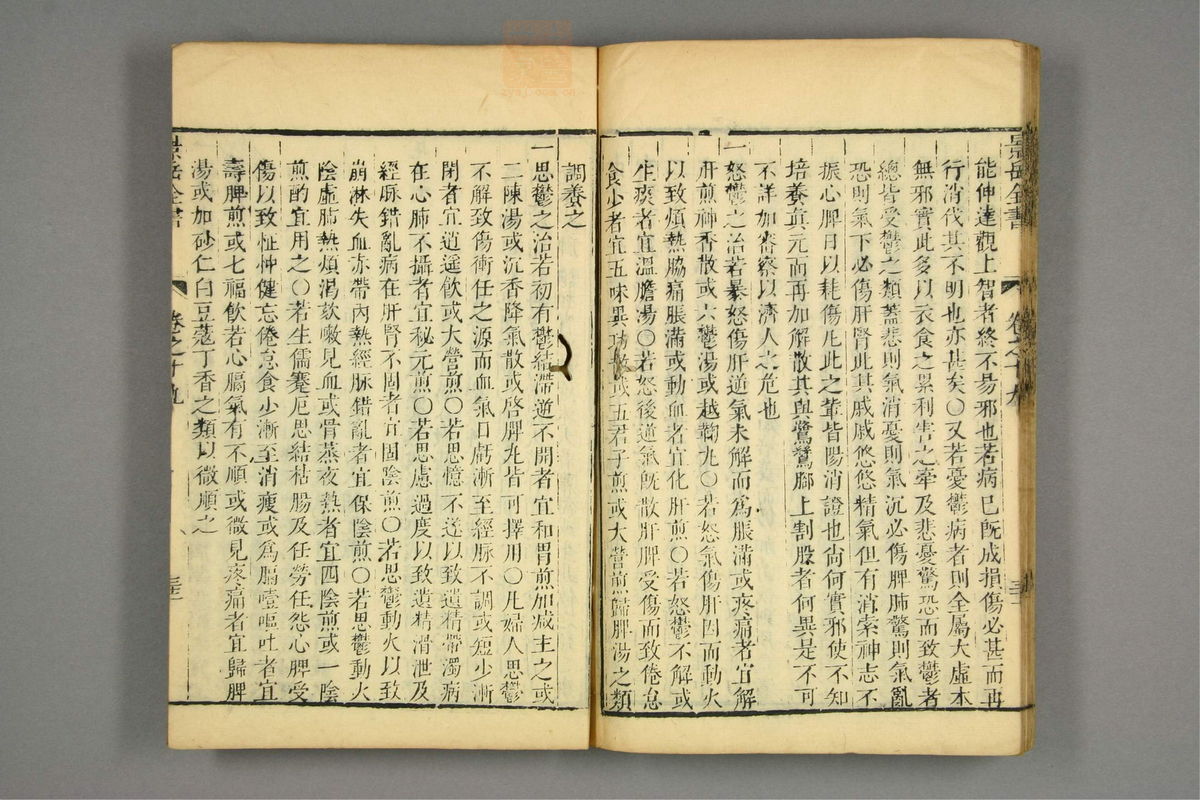 景岳全書
卷之十九
能伸達觀上智者終不昜邪也若病已旣成損傷必甚而再
行消伐其不明也亦甚矣○又若憂鬱病者則全屬大虛本
無邪實此多以衣食之累利害之牽及悲憂驚恐而致鬱者
總皆受鬱之類葢悲則氣消憂則氣沉必傷脾肺驚則氣亂
恐則氣下必傷肝腎此其戚戚悠悠精氣但有消索神志不
振心脾日以耗傷凡此之輩皆陽消證也尙何實邪使不知
培養眞元而再加解散其與鷺鷥脚上割股者何異是不可
不詳加審察以濟人之危也
一怒鬱之治若暴怒傷肝逆氣未解而爲脹滿或疼痛者宜解
肝煎神香散或六鬱湯或越鞠丸○若怒氣傷肝因而動火
以致煩熱脇痛脹滿或動血者宜化肝煎○若怒鬱不解或
生痰者宜溫膽湯○若怒後逆氣旣散肝脾受傷而致倦怠
食少者宜五味異功散或五君子煎或大營煎歸脾湯之類
調養之
一思鬱之治若初有鬱結滯逆不開者宜和胃煎加减主之或
二陳湯或沉香降氣散或啓脾丸皆可擇用○凡婦人思鬱
不解致傷衝任之源而血氣日虧漸至經脉不調或短少漸
閉者宜逍遥飲或大營煎○若思憶不遂以致遺精帶濁病
在心肺不攝者宜秘元煎○若思慮過度以致遺精滑泄及
經脉錯亂病在肝腎不固者宜固陰煎○若思鬱動火以致
崩淋失血赤帶內熱經脉錯亂者宜保陰煎○若思鬱動火
陰虛肺熱煩渴欬嗽見血或骨蒸夜熱者宜四陰煎或一陰
煎酌宜用之○若生儒蹇厄思結枯腸及任勞任怨心脾受
傷以致怔忡健忘倦怠食少漸至消瘦或爲膈噎嘔吐者宜
壽脾煎或七福飲若心膈氣有不順或微見疼痛者宜歸脾
湯或加砂仁白豆蔻丁香之類以微順之
景岳全書
卷之十九